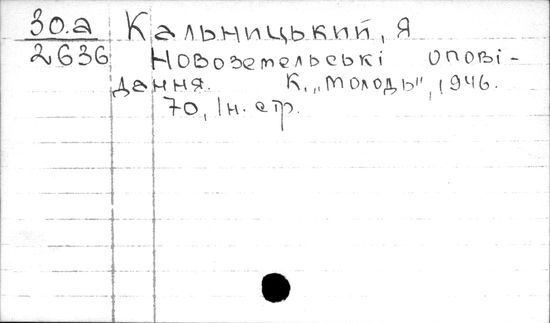 30.а Кальницький, Я
2636 Новоземельські опові-
дання. К., „Молодь", 1946.
70, 1н. стр.